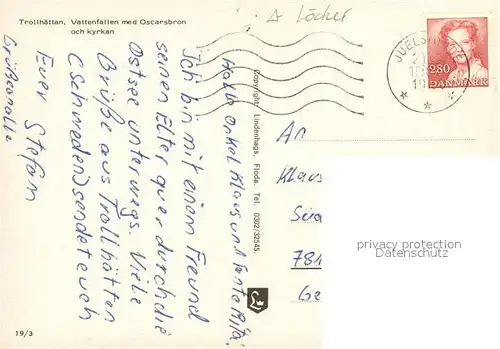 Trollhättan, Vattenfallen med Oscarsbron
och kyrkan
A Löcher
Hallo Onkel Klaus und Tante Rita!
Ich bin mit einem Freund
seinen Elter quer durch die
Ostsee unterwegs. Viele
Grüße aus Trollhätten
(Schweden) sendet euch
Euer Stefan
Grüße an alle
Copyright: Lindenhags, Floda. Tel. 0302/32545.
L
19/3
JUELS
2.80
DANMARK
An
Klaus
781
Ge
privacy protection
Datenschutz